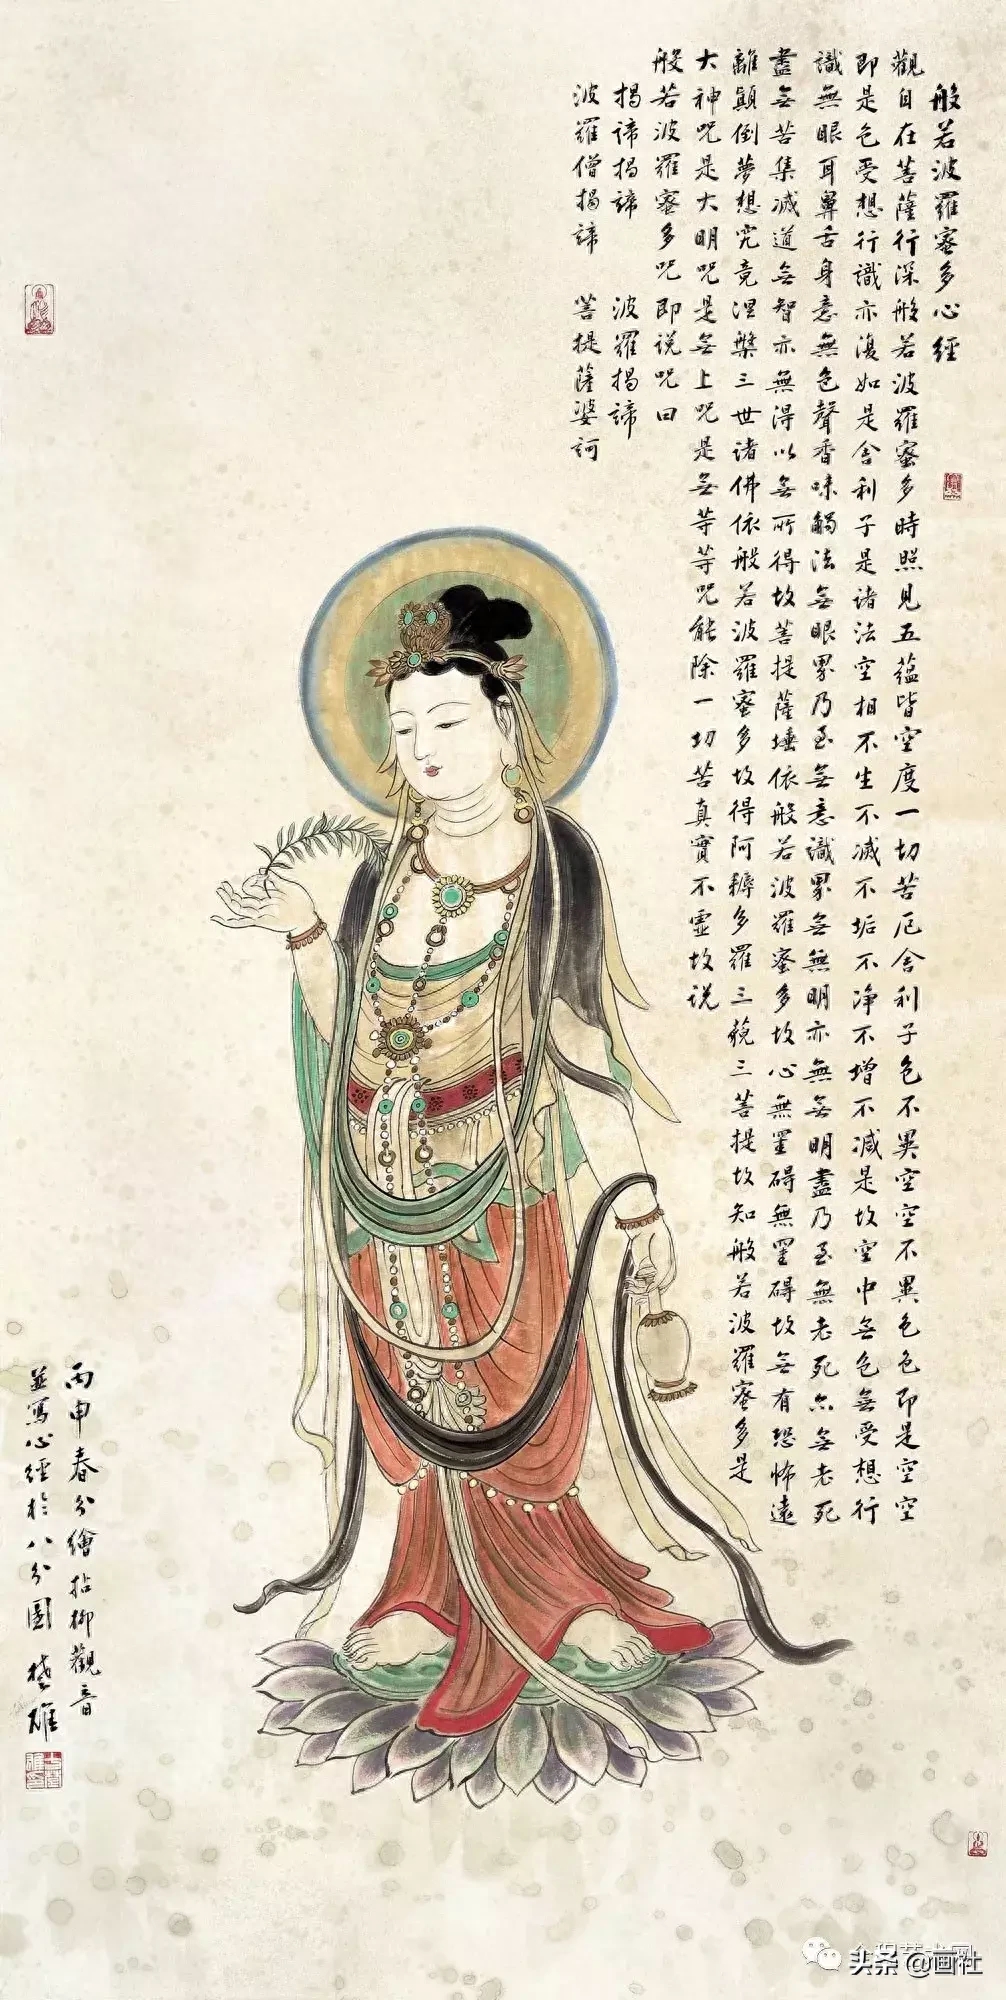 般若波羅蜜多心經
觀自在菩薩行深般若波羅蜜多時照見五蘊皆空度一切苦厄舍利子色不異空空不異色色即是空空
即是色受想行識亦復如是舍利子是諸法空相不生不滅不垢不净不增不減是故空中無色無受想行
識無眼耳鼻舌身意無色聲香味觸法無眼界乃至無意識界無無明亦無無明盡乃至無老死亦無老死
盡無苦集滅道無智亦無得以無所得故菩提薩埵依般若波羅蜜多故心無罣礙無罣礙故無有恐怖遠
離顛倒夢想究竟涅槃三世諸佛依般若波羅蜜多故得阿耨多羅三藐三菩提故知般若波羅蜜多是
大神咒是大明咒是無上咒是無等等咒能除一切苦真實不虛故说
般若波羅蜜多咒即说咒曰
揭諦揭諦 波羅揭諦
波羅僧揭諦 菩提薩婆訶
丙申春分繪拈柳觀音
並寫心經於八分圖 楚雄
头条 @画社